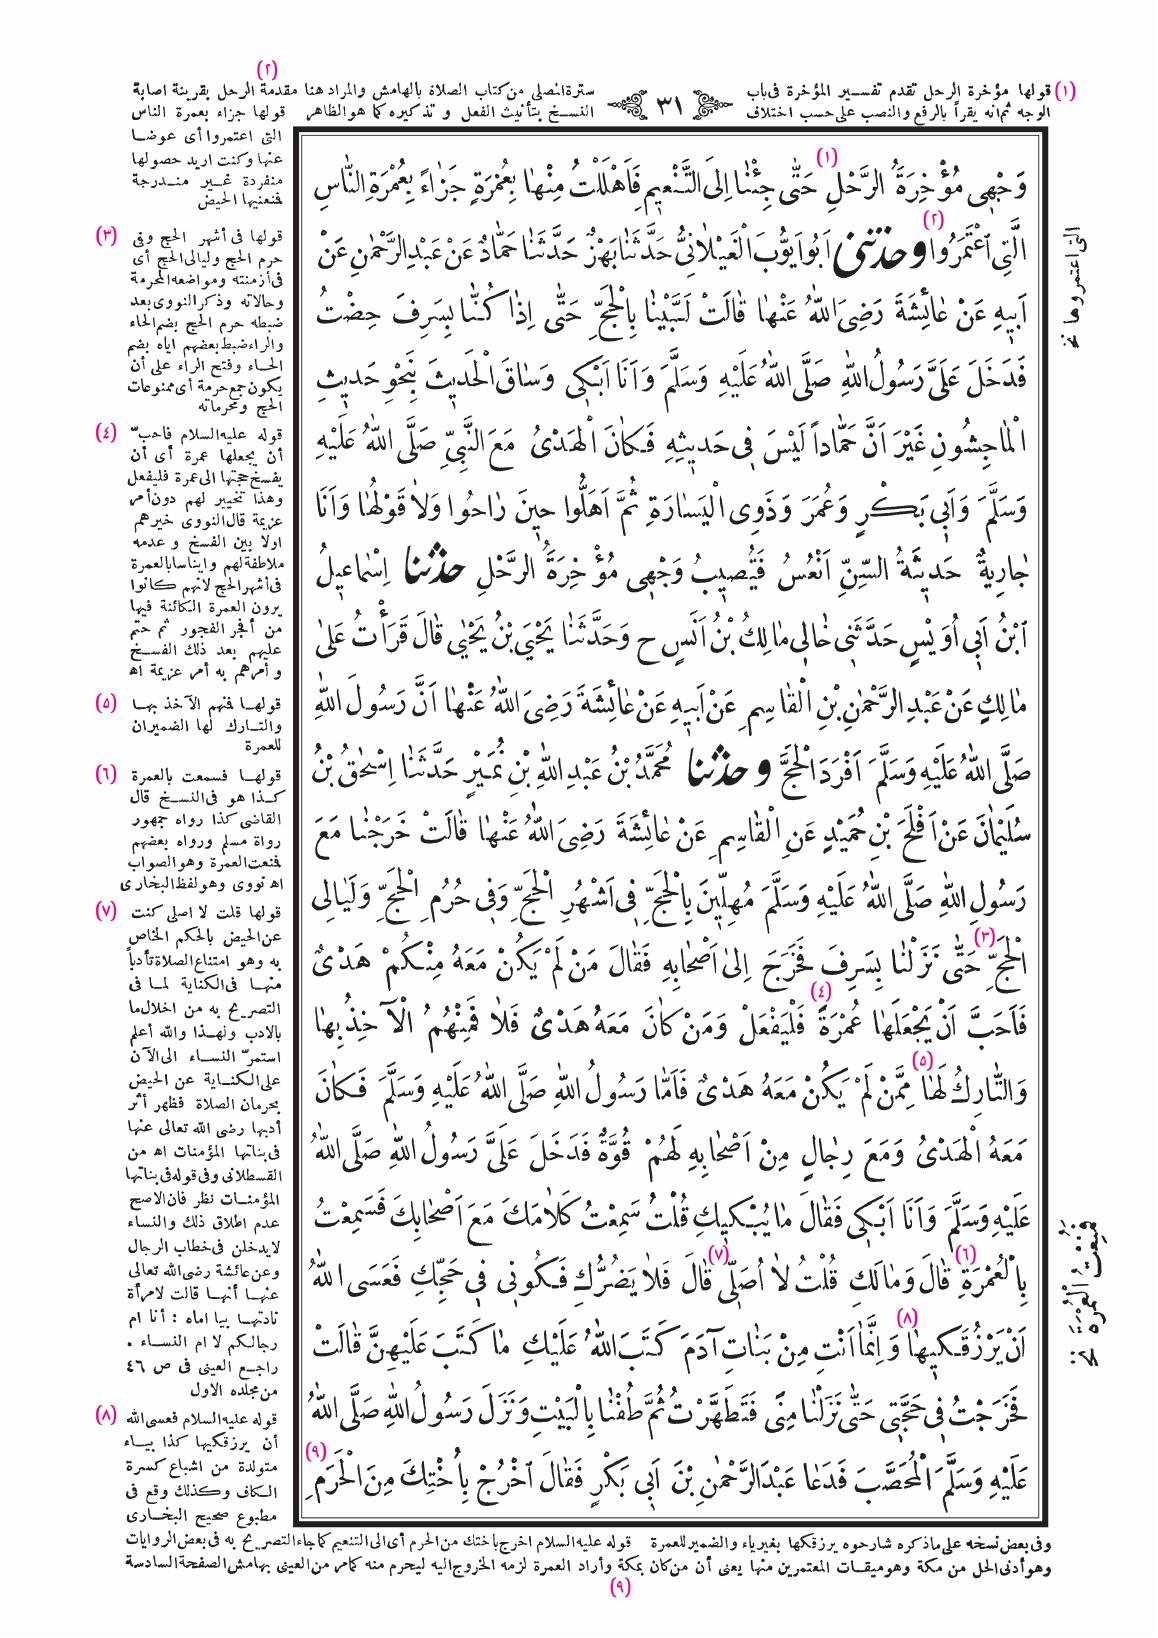 (٢)
(١) قولها مؤخرة الرحل تقدم تفسير المؤخرة فى باب
سترة المصلى من كتاب الصلاة بالهامش والمراد هنا مقدمة الرحل بقرينة اصابة
٣١
الوجه ثم انه يقرأ بالرفع والنصب على حسب اختلاف
النسخ بتأنيث الفعل و تذكيره كما هو الظاهر
قولها جزاء بعمرة الناس
التى اعتمروا أى عوضا
عنها وكنت اريد حصولها
منفردة غير مندرجة
فمنعنيها الحيض
(٣) قولها فى أشهر الحج وفى
حرم الحج وليالى الحج أى
فى أزمنته ومواضعه المحرمة
وحالاته وذكر النووى بعد
ضبطه حرم الحج بضم الحاء
والراء ضبط بعضهم اياه بضم
الحاء وفتح الراء على أن
يكون جمع حرمة أى ممنوعات
الحج ومحرماته
(٤) قوله عليه السلام فاحبّ
أن يجعلها عمرة أى أن
يفسخ حجتها الى عمرة فليفعل
وهذا تخيير لهم دون أمر
عزيمة قال النووى خيرهم
اولا بين الفسخ و عدمه
ملاطفة لهم وايناسا بالعمرة
فى أشهر الحج لانهم كانوا
يرون العمرة الكائنة فيها
من أفجر الفجور ثم حتم
عليهم بعد ذلك الفسخ
و أمرهم به أمر عزيمة اه
(٥) قولها فمنهم الآخذ بها
والتارك لها الضميران
للعمرة
(٦) قولها فسمعت بالعمرة
كذا هو فى النسخ قال
القاضى كذا رواه جمهور
رواة مسلم ورواه بعضهم
فمنعت العمرة وهو الصواب
اه نووى وهو لفظ البخارى
(٧) قولها قلت لا اصلى كنت
عن الحيض بالحكم الخاص
به وهو امتناع الصلاة تأدباً
منها فى الكناية لما فى
التصريح به من اخلال ما
بالادب ولهذا والله أعلم
استمرّ النساء الى الآن
على الكناية عن الحيض
بحرمان الصلاة فظهر أثر
أدبها رضى الله تعالى عنها
فى بناتها المؤمنات اه من
القسطلانى وفى قوله فى بناتها
المؤمنات نظر فان الاصح
عدم اطلاق ذلك والنساء
لا يدخلن فى خطاب الرجال
وعن عائشة رضى الله تعالى
عنها أنها قالت لامرأة
نادتها بيا اماه : أنا ام
رجالكم لا ام النساء .
راجع العينى فى ص ٤٦
من مجلده الاول
(٨) قوله عليه السلام فعسى الله
أن يرزقكيها كذا بياء
متولدة من اشباع كسرة
الكاف وكذلك وقع فى
مطبوع صحيح البخارى
وَجْهِى مُؤْخِرَةُ الرَّحْلِ (١) حَتّٰى جِئْنَا اِلَى التَّنْعِيمِ فَاَهْلَلْتُ مِنْهَا بِعُمْرَةٍ جَزَاءً بِعُمْرَةِ النَّاسِ
الَّتِى اعْتَمَرُوا (٢) وحدثنى اَبُو اَيُّوبَ الْغَيْلَانِىُّ حَدَّثَنَا بَهْزٌ حَدَّثَنَا حَمَّادٌ عَنْ عَبْدِ الرَّحْمٰنِ عَنْ
اَبِيهِ عَنْ عَائِشَةَ رَضِىَ اللهُ عَنْهَا قَالَتْ لَبَّيْنَا بِالْحَجِّ حَتّٰى اِذَا كُنَّا بِسَرِفَ حِضْتُ
فَدَخَلَ عَلَىَّ رَسُولُ اللهِ صَلَّى اللهُ عَلَيْهِ وَسَلَّمَ وَاَنَا اَبْكِى وَسَاقَ الْحَدِيثَ بِنَحْوِ حَدِيثِ
الْمَاجِشُونِ غَيْرَ اَنَّ حَمَّاداً لَيْسَ فِى حَدِيثِهِ فَكَانَ الْهَدْىُ مَعَ النَّبِىِّ صَلَّى اللهُ عَلَيْهِ
وَسَلَّمَ وَاَبِى بَكْرٍ وَعُمَرَ وَذَوِى الْيَسَارَةِ ثُمَّ اَهَلُّوا حِينَ رَاحُوا وَلَا قَوْلُهَا وَاَنَا
جَارِيَةٌ حَدِيثَةُ السِّنِّ اَنْعُسُ فَتُصِيبُ وَجْهِى مُؤْخِرَةُ الرَّحْلِ حدثنا اِسْمَاعِيلُ
ابْنُ اَبِى اُوَيْسٍ حَدَّثَنِى خَالِى مَالِكُ بْنُ اَنَسٍ ح وَحَدَّثَنَا يَحْيَى بْنُ يَحْيٰى قَالَ قَرَأْتُ عَلٰى
مَالِكٍ عَنْ عَبْدِ الرَّحْمٰنِ بْنِ الْقَاسِمِ عَنْ اَبِيهِ عَنْ عَائِشَةَ رَضِىَ اللهُ عَنْهَا اَنَّ رَسُولَ اللهِ
صَلَّى اللهُ عَلَيْهِ وَسَلَّمَ اَفْرَدَ الْحَجَّ وحدثنا مُحَمَّدُ بْنُ عَبْدِ اللهِ بْنِ نُمَيْرٍ حَدَّثَنَا اِسْحٰقُ بْنُ
سُلَيْمَانَ عَنْ اَفْلَحَ بْنِ حُمَيْدٍ عَنِ الْقَاسِمِ عَنْ عَائِشَةَ رَضِىَ اللهُ عَنْهَا قَالَتْ خَرَجْنَا مَعَ
رَسُولِ اللهِ صَلَّى اللهُ عَلَيْهِ وَسَلَّمَ مُهِلِّينَ بِالْحَجِّ فِى اَشْهُرِ الْحَجِّ وَفِى حُرُمِ الْحَجِّ وَلَيَالِى
الْحَجِّ (٣) حَتّٰى نَزَلْنَا بِسَرِفَ فَخَرَجَ اِلٰى اَصْحَابِهِ فَقَالَ مَنْ لَمْ يَكُنْ مَعَهُ مِنْكُمْ هَدْىٌ
فَاَحَبَّ اَنْ يَجْعَلَهَا عُمْرَةً (٤) فَلْيَفْعَلْ وَمَنْ كَانَ مَعَهُ هَدْىٌ فَلَا فَمِنْهُمُ الْآخِذُ بِهَا
وَالتَّارِكُ لَهَا (٥) مِمَّنْ لَمْ يَكُنْ مَعَهُ هَدْىٌ فَاَمَّا رَسُولُ اللهِ صَلَّى اللهُ عَلَيْهِ وَسَلَّمَ فَكَانَ
مَعَهُ الْهَدْىُ وَمَعَ رِجَالٍ مِنْ اَصْحَابِهِ لَهُمْ قُوَّةٌ فَدَخَلَ عَلَىَّ رَسُولُ اللهِ صَلَّى اللهُ
عَلَيْهِ وَسَلَّمَ وَاَنَا اَبْكِى فَقَالَ مَا يُبْكِيكِ قُلْتُ سَمِعْتُ كَلَامَكَ مَعَ اَصْحَابِكَ فَسَمِعْتُ
بِالْعُمْرَةِ (٦) قَالَ وَمَا لَكِ قُلْتُ لَا اُصَلِّى (٧) قَالَ فَلَا يَضُرُّكِ فَكُونِى فِى حَجِّكِ فَعَسَى اللهُ
اَنْ يَرْزُقَكِيهَا (٨) وَاِنَّمَا اَنْتِ مِنْ بَنَاتِ آدَمَ كَتَبَ اللهُ عَلَيْكِ مَا كَتَبَ عَلَيْهِنَّ قَالَتْ
فَخَرَجْتُ فِى حَجَّتِى حَتّٰى نَزَلْنَا مِنًى فَتَطَهَّرْتُ ثُمَّ طُفْنَا بِالْبَيْتِ وَنَزَلَ رَسُولُ اللهِ صَلَّى اللهُ
عَلَيْهِ وَسَلَّمَ الْمُحَصَّبَ فَدَعَا عَبْدَ الرَّحْمٰنِ بْنَ اَبِى بَكْرٍ فَقَالَ اخْرُجْ بِاُخْتِكَ مِنَ الْحَرَمِ (٩)
التى اعتمروها نخ
فَمُنِعْتُ الْعُمْرَةَ نخ
وفى بعض نسخه على ما ذكره شارحوه يرزقكها بغير ياء والضمير للعمرة قوله عليه السلام اخرج باختك من الحرم أى الى التنعيم كما جاء التصريح به فى بعض الروايات
وهو أدنى الحل من مكة وهو ميقات المعتمرين منها يعنى أن من كان بمكة وأراد العمرة لزمه الخروج اليه ليحرم منه كما مر من العينى بهامش الصفحة السادسة
(٩)